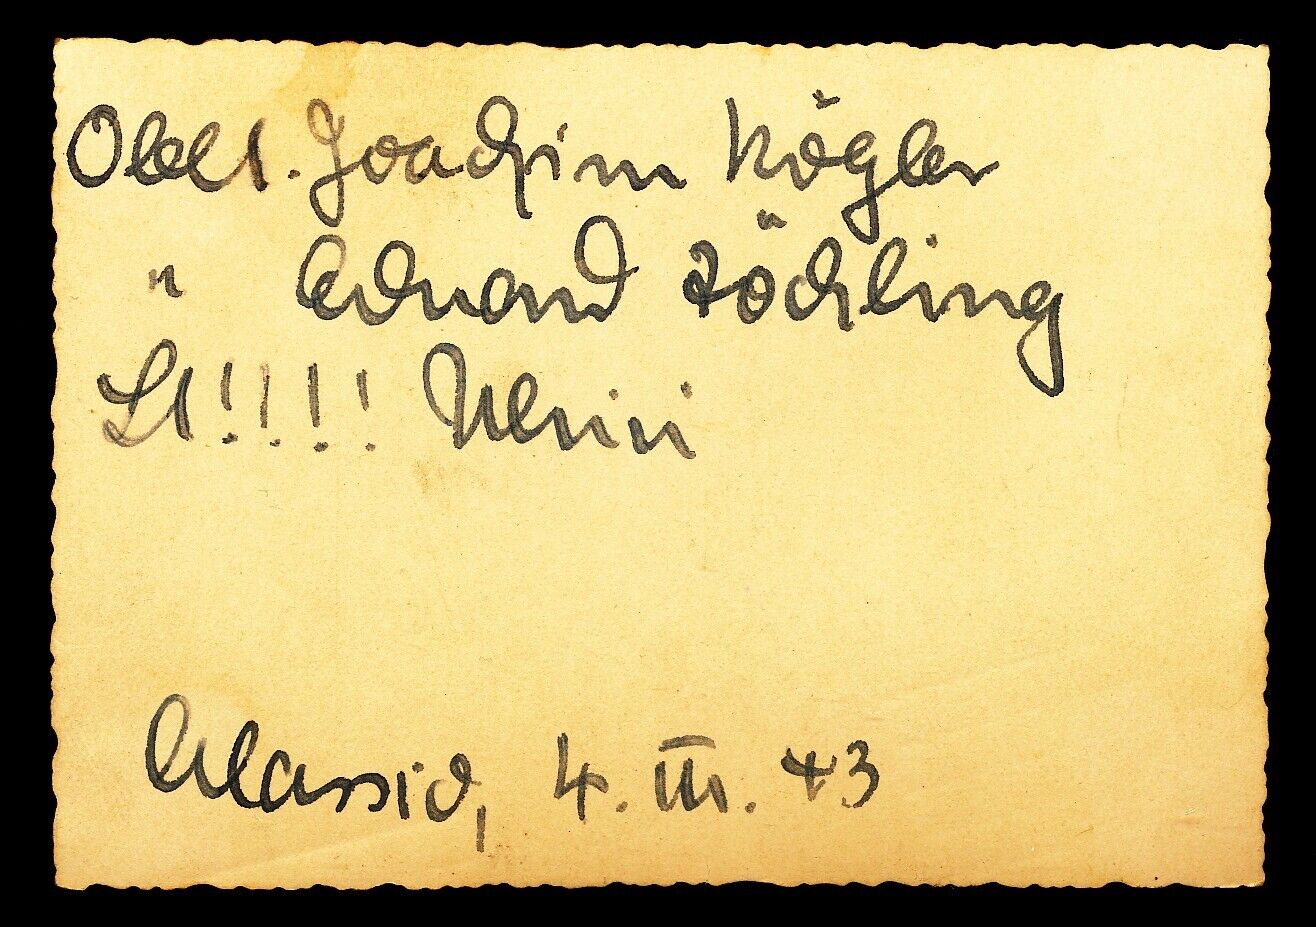 Oblt. Joachim Kögler
" Eduard Röchling
Lt!!!! Neini
, 4. III. 43